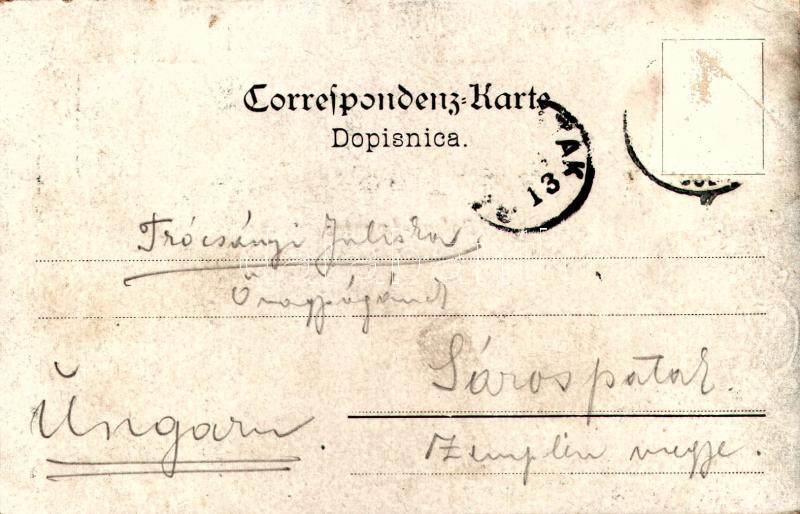 Correspondenz-Karte
Dopisnica.
AK
13
Trócsányi Juliska
Őnagyságának
Sárospatak.
Ungarn.
Zemplén megye.